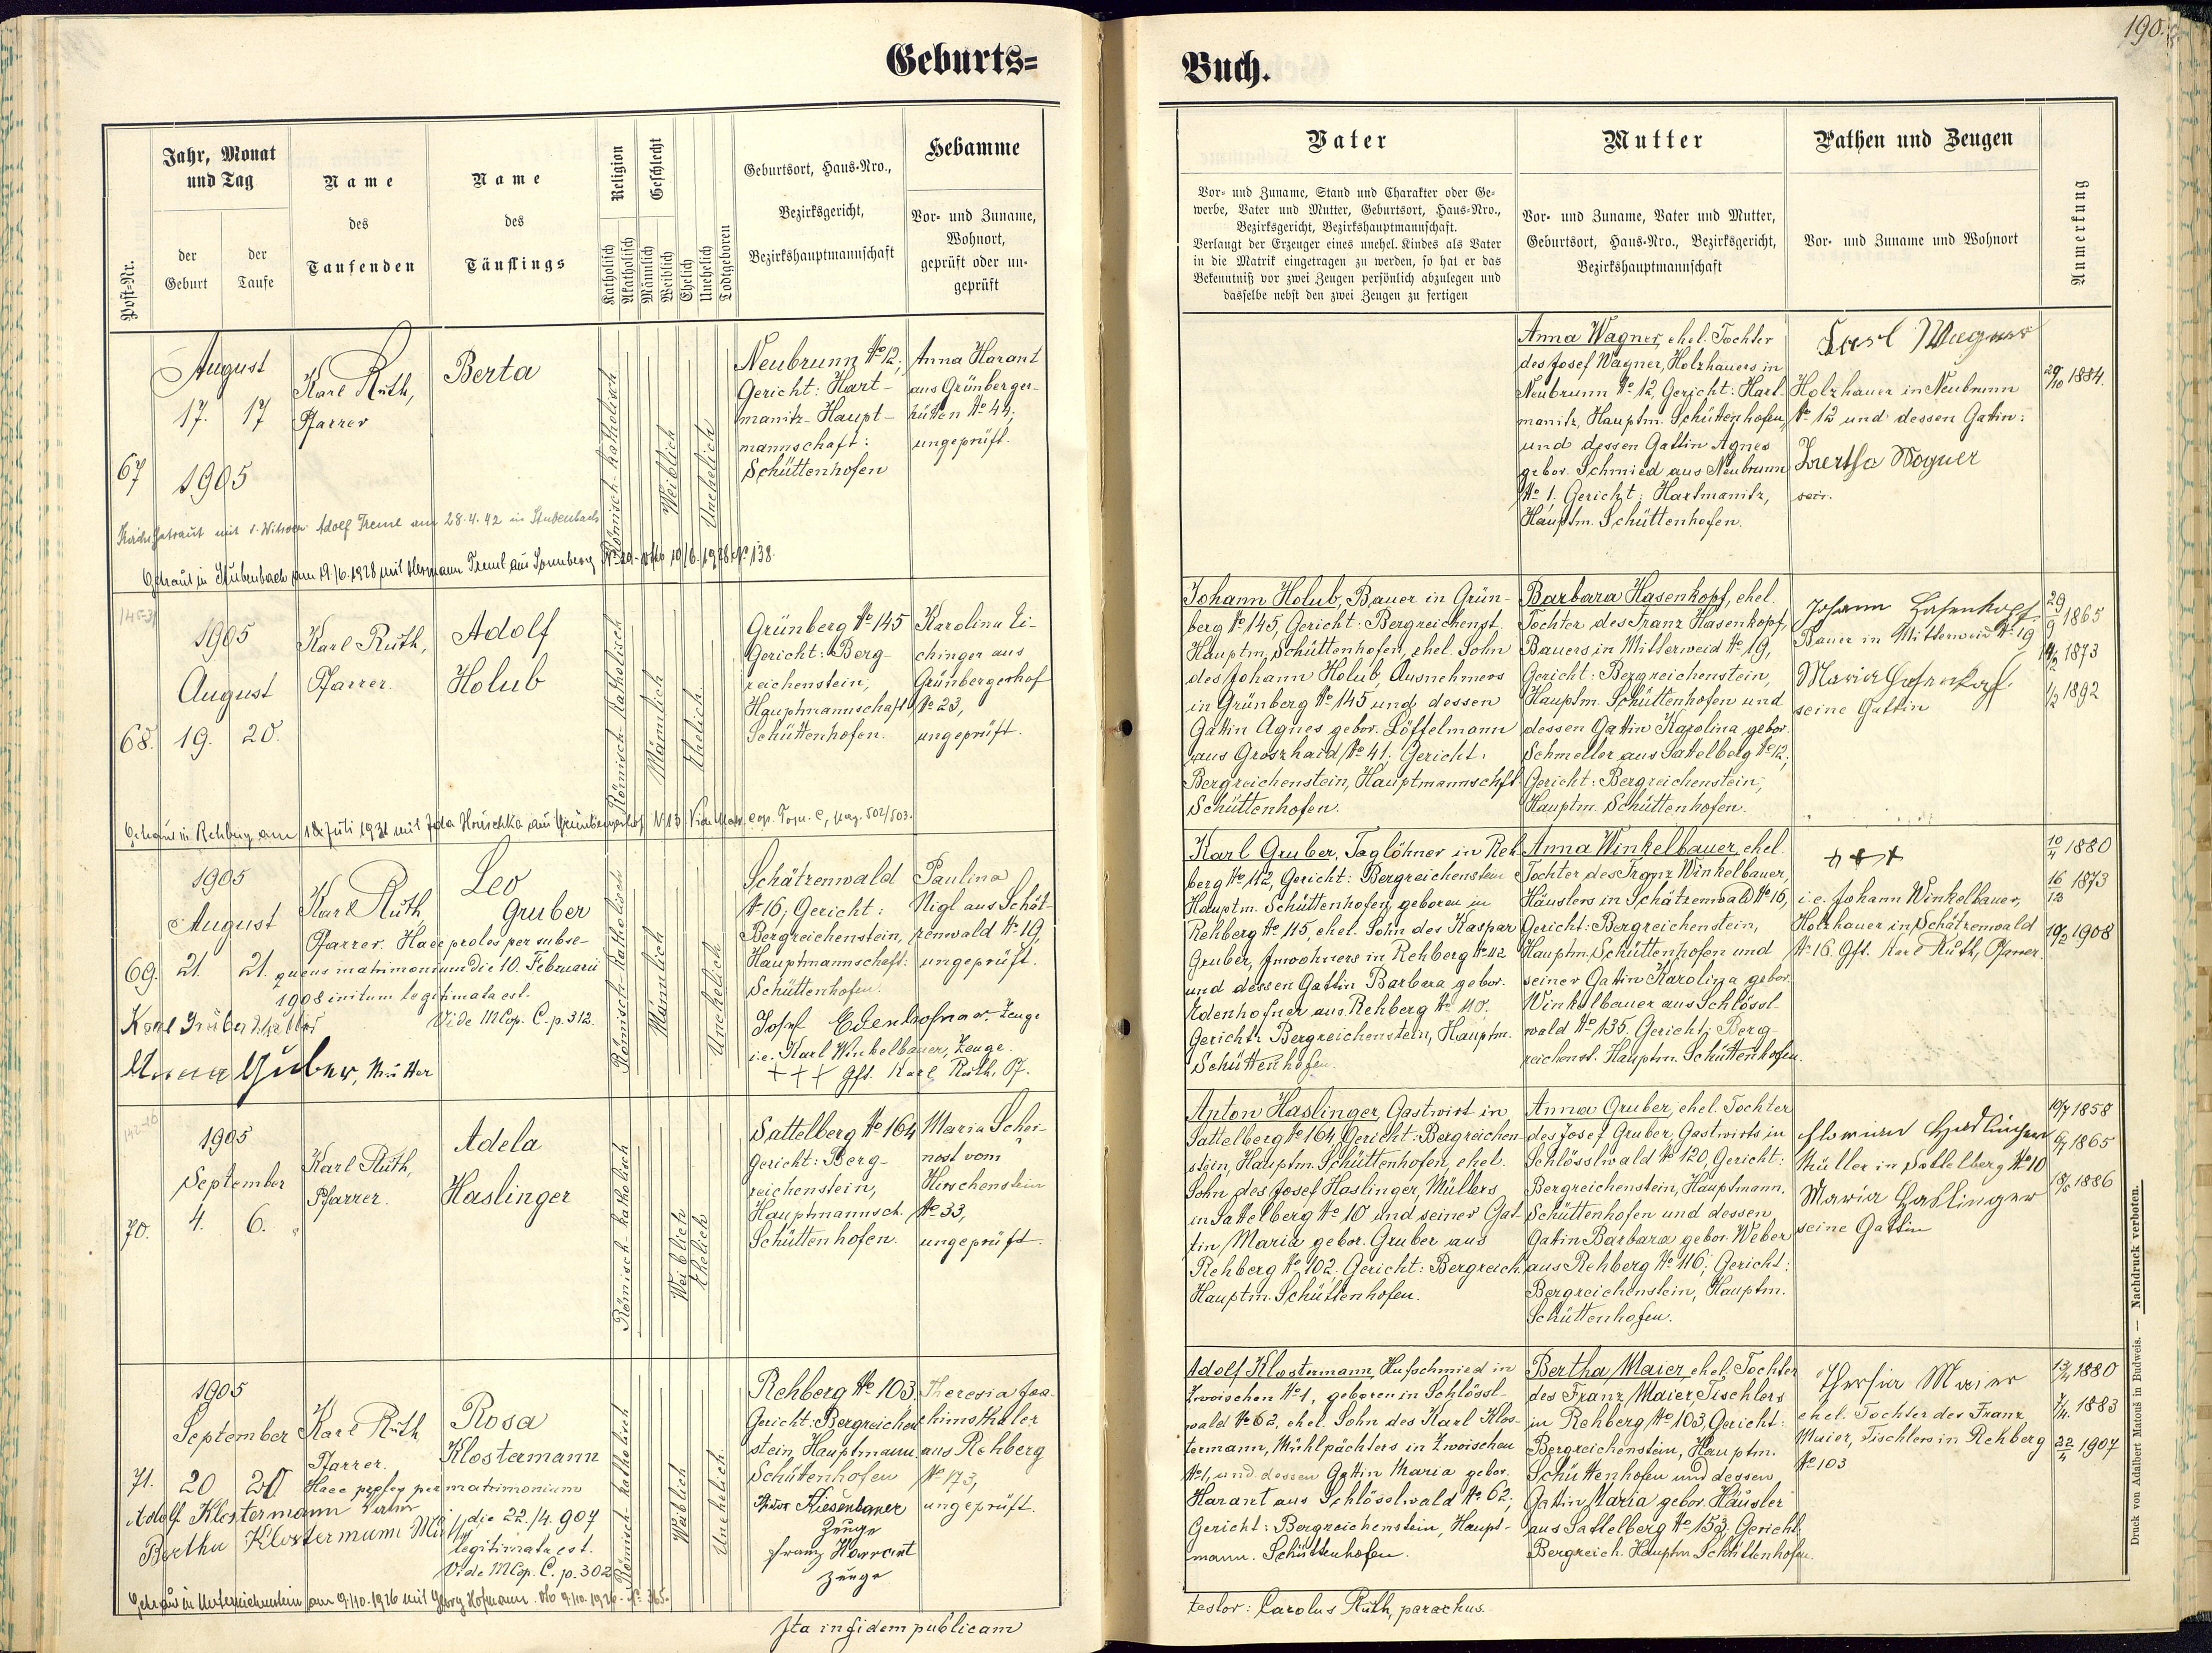 190.
Geburts=
Buch.
Post-Nr.
Jahr, Monat
und Tag
der
Geburt
der
Taufe
Name
des
Taufenden
Name
des
Täuflings
Religion
Katholisch
Akatholisch
Geschlecht
Männlich
Weiblich
Ehelich
Unehelich
Todtgeboren
Geburtsort, Haus-Nro.,
Bezirksgericht,
Bezirkshauptmannschaft
Hebamme
Vor- und Zuname,
Wohnort,
geprüft oder un-
geprüft
Vater
Vor- und Zuname, Stand und Charakter oder Ge-
werbe, Vater und Mutter, Geburtsort, Haus-Nro.,
Bezirksgericht, Bezirkshauptmannschaft.
Verlangt der Erzeuger eines unehel. Kindes als Vater
in die Matrik eingetragen zu werden, so hat er das
Bekenntniß vor zwei Zeugen persönlich abzulegen und
dasselbe nebst den zwei Zeugen zu fertigen
Mutter
Vor- und Zuname, Vater und Mutter,
Geburtsort, Haus-Nro., Bezirksgericht,
Bezirkshauptmannschaft
Pathen und Zeugen
Vor- und Zuname und Wohnort
Anmerkung
67
August
17. 17
1905
Karl Ruth,
Pfarrer
Berta
Römisch-katholisch
Weiblich
Unehelich
Neubrunn № 12;
Gericht: Hart-
manitz-Haupt-
mannschaft:
Schüttenhofen
Anna Harant
aus Grünberger-
hütten № 44;
ungeprüft.
getraut mit d. Witwer Adolf Treml am 28.4.42 in Stubenbach
Getraut in Stubenbach am 19/6.1928 mit Hermann Treml aus Sonnberg № 29 - 19/6.1928 № 138.
Anna Wagner, ehel. Tochter
des Josef Wagner, Holzhauers in
Neubrunn № 12, Gericht: Hart-
manitz, Hauptm. Schüttenhofen,
und dessen Gattin Agnes
gebor. Schmied aus Neubrunn
№ 1. Gericht: Hartmanitz,
Hauptm. Schüttenhofen.
Karl Wagner
Holzhauer in Neubrunn
№ 12 und dessen Gattin:
Bertha Wagner
29/10 1884.
68.
1905
August
19. 20.
Karl Ruth,
Pfarrer.
Adolf
Holub
Römisch-katholisch
Männlich
Ehelich
Grünberg № 145
Gericht: Berg-
reichenstein,
Hauptmannschaft
Schüttenhofen.
Karolina Ei-
chinger aus
Grünbergerhof
№ 23,
ungeprüft.
Getraut in Rehberg am 18 Juli 1931 mit Ida Hruschka aus Grünbergerhof № 13. Vide Matr. cop. Tom. C, pag. 502/503.
Johann Holub, Bauer in Grün-
berg № 145, Gericht: Bergreichenst.
Hauptm. Schüttenhofen, ehel. Sohn
des Johann Holub, Ausnehmers
in Grünberg № 145 und dessen
Gattin Agnes gebor. Löffelmann
aus Groszhaid № 41; Gericht:
Bergreichenstein, Hauptmannschft
Schüttenhofen.
Barbara Hasenkopf, ehel.
Tochter des Franz Hasenkopf,
Bauers in Mitterweid № 19,
Gericht: Bergreichenstein,
Hauptm. Schüttenhofen und
dessen Gattin Karolina gebor.
Schmeller aus Sattelberg № 12;
Gericht: Bergreichenstein;
Hauptm. Schüttenhofen.
Johann Hasenkopf
Bauer in Mitterweid № 19
Maria Hasenkopf
seine Gattin
29/9 1865
14/2 1873
1/2 1892
69.
1905
August
21. 21.
Karl Ruth,
Pfarrer. Haec proles per subse-
quens matrimonium die 10. Februarii
1908 initum legitimata est.
Vide MCop. C. p. 312.
Leo
Gruber
Karl Gruber, Vater
Anna Gruber, Mutter
Römisch-katholisch
Männlich
Unehelich
Schätzenwald
№ 16; Gericht:
Bergreichenstein,
Hauptmannschaft:
Schüttenhofen.
Paulina
Nigl aus Schät-
zenwald № 19,
ungeprüft.
Josef Edenhofner, Zeuge
i.e. Karl Winkelbauer, Zeuge.
+++ Gft. Karl Ruth, Pf.
Karl Gruber, Taglöhner in Reh-
berg № 112, Gericht: Bergreichenstein
Hauptm. Schüttenhofen, geboren in
Rehberg № 115, ehel. Sohn des Kaspar
Gruber, Inwohners in Rehberg № 112
und dessen Gattin Barbara gebor.
Edenhofner aus Rehberg № 110.
Gericht: Bergreichenstein, Hauptm.
Schüttenhofen.
Anna Winkelbauer, ehel.
Tochter des Franz Winkelbauer,
Häuslers in Schätzenwald № 16,
Gericht: Bergreichenstein,
Hauptm. Schüttenhofen und
seiner Gattin Karolina gebor.
Winkelbauer aus Schlössl-
wald № 135. Gericht: Berg-
reichenst. Hauptm. Schüttenhofen.
+++
i.e. Johann Winkelbauer,
Holzhauer in Schätzenwald
№ 16. Gft. Karl Ruth, Pfarrer.
10/4 1880
16/12 1873
10/2 1908
70.
1905
September
4. 6.
Karl Ruth,
Pfarrer.
Adela
Haslinger
Römisch-katholisch
Weiblich
Ehelich
Sattelberg № 164
Gericht: Berg-
reichenstein,
Hauptmannsch.
Schüttenhofen.
Maria Scher-
nost vom
Hirschenstein
№ 33,
ungeprüft.
Anton Haslinger, Gastwirt in
Sattelberg № 164, Gericht: Bergreichen-
stein, Hauptm. Schüttenhofen, ehel.
Sohn des Josef Haslinger, Müllers
in Sattelberg № 10 und seiner Gat-
tin Maria gebor. Gruber aus
Rehberg № 102. Gericht: Bergreich.
Hauptm. Schüttenhofen.
Anna Gruber, ehel. Tochter
des Josef Gruber, Gastwirts in
Schlösslwald № 120, Gericht:
Bergreichenstein, Hauptmann.
Schüttenhofen und dessen
Gattin Barbara gebor. Weber
aus Rehberg № 116; Gericht:
Bergreichenstein, Hauptm.
Schüttenhofen.
Florian Haslinger
Müller in Sattelberg № 10
Maria Haslinger
seine Gattin
10/7 1858
1865
1886
71.
1905
September
20 20
Karl Ruth
Pfarrer.
Haec proles per matrimonium
die 22./4. 907
legitimata est.
Vide MCop. C. p. 302
Rosa
Klostermann
Adolf Klostermann Vater
Bertha Klostermann Mutter
Getraut in Unterreichenstein am 9/10.1926 mit Georg Hofmann. 9/10.1926. № 365.
Römisch-katholisch
Weiblich
Unehelich
Rehberg № 103.
Gericht: Bergreichen-
stein, Hauptmann.
Schüttenhofen
Theresia Joa-
chimsthaler
aus Rehberg
№ 173,
ungeprüft.
Riesenbauer
Zeuge
Franz Harant
Zeuge
Adolf Klostermann, Hufschmied in
Zwoischen № 1, geboren in Schlössl-
wald № 62, ehel. Sohn des Karl Klos-
termann, Mühlpächters in Zwoischen
№ 1, und dessen Gattin Maria gebor.
Harant aus Schlösslwald № 62;
Gericht: Bergreichenstein, Haupt-
mann. Schüttenhofen.
Bertha Maier, ehel. Tochter
des Franz Maier, Tischlers
in Rehberg № 103, Gericht:
Bergreichenstein, Hauptm.
Schüttenhofen und dessen
Gattin Maria gebor. Häusler
aus Sattelberg № 153; Gericht
Bergreich. Hauptm. Schüttenhofen.
Thersia Maier
ehel. Tochter des Franz
Maier, Tischlers in Rehberg
№ 103
1880
1883
22/4 1907
Ita in fidem publicam
testor: Carolus Ruth, parochus.
Druck von Adalbert Matouš in Budweis. — Nachdruck verboten.